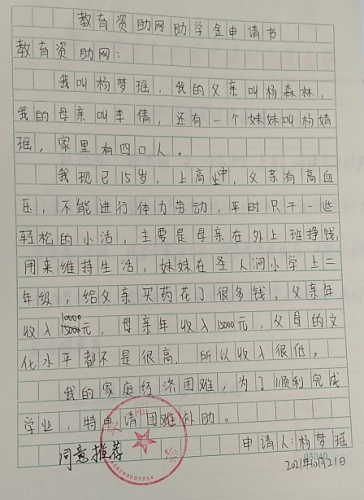 教育资助网助学金申请书
教育资助网：
我叫杨梦瑶，我的父亲叫杨森林，
我的母亲叫李倩，还有一个妹妹叫杨婧
瑶，家里有四口人。
我现已15岁，上高中，父亲有高血
压，不能进行体力劳动，平时只干一些
轻松的小活，主要是母亲在外上班挣钱，
用来维持生活，妹妹在圣人涧小学上二
年级，给父亲买药花了很多钱。父亲年
收入10000元，母亲年收入15000元，父母的文
化水平都不是很高，所以收入很低。
我的家庭经济困难，为了顺利完成
学业，特申请困难补助。
同意推荐 申请人：杨梦瑶
2021年10月21日